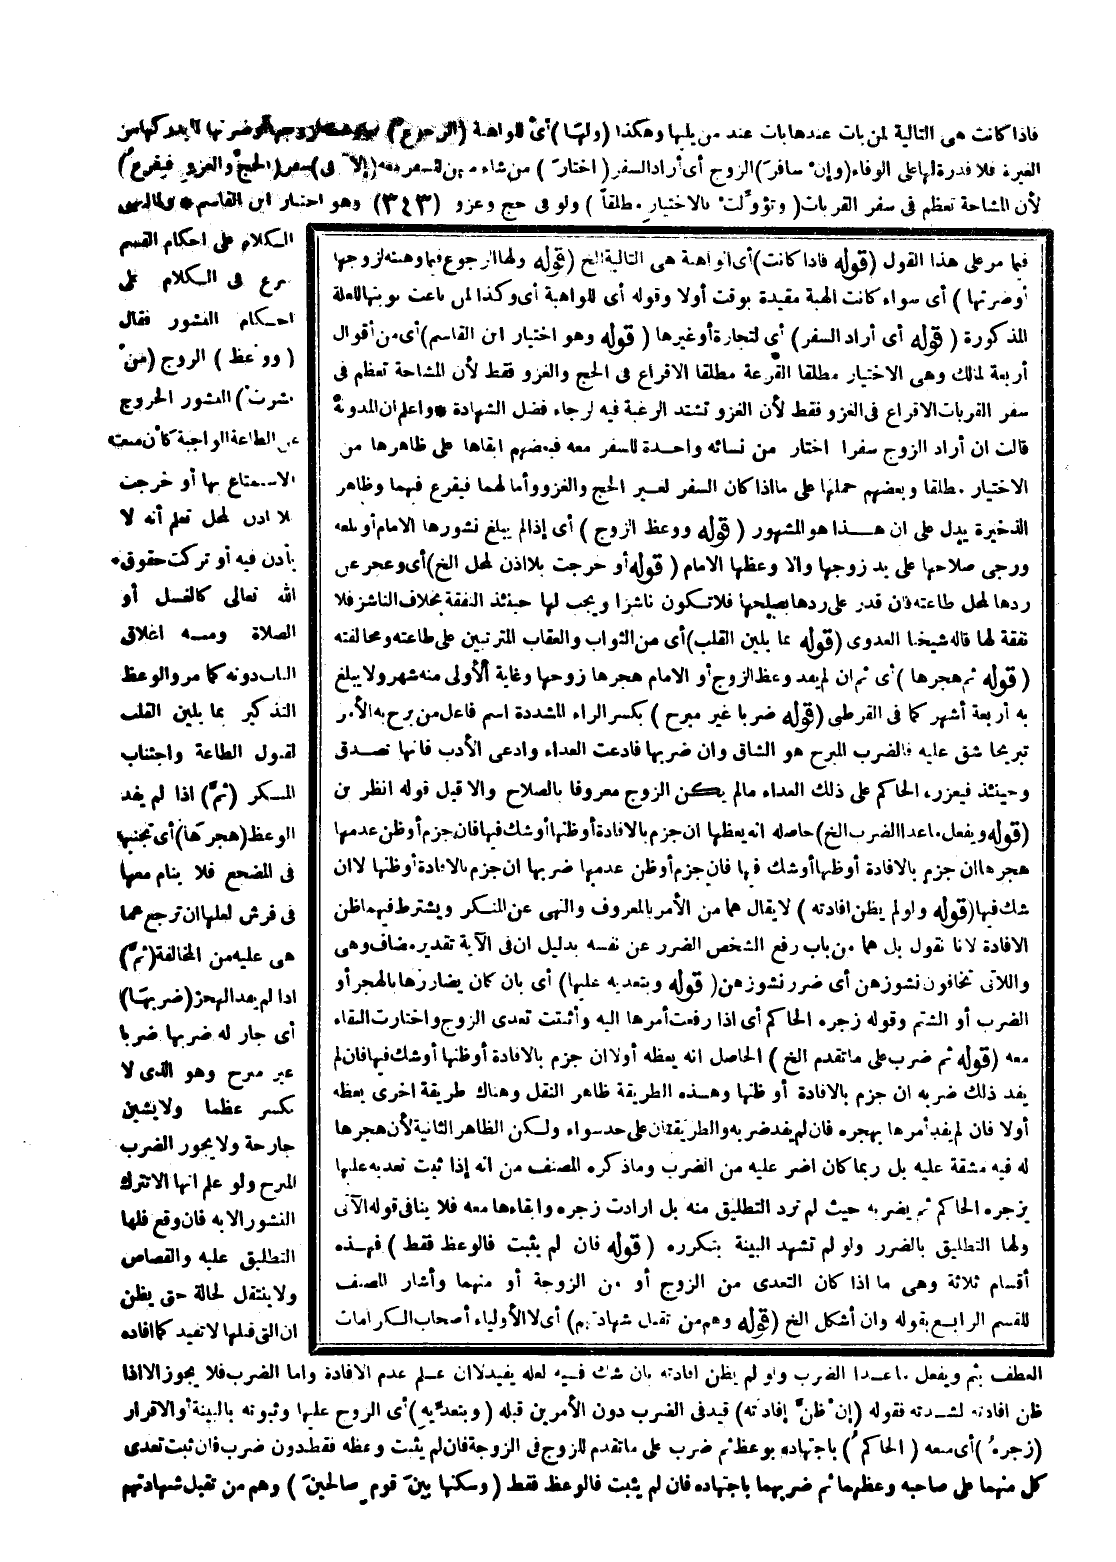 فاذا كانت هى التالية لمن بات عندها بات عند من يليها وهكذا (ولها) أى للواهبة (الرجوع)
الغيرة فلا قدرة لها على الوفاء (وإن سافر) الزوج أى أراد السفر (اختار) من شاء منهن للسفر معه (إلا فى) سفر (الحج والغزو فيقرع)
لأن المشاحة تعظم فى سفر القربات (وتؤولت بالاختيار مطلقا) ولو فى حج وغزو (٣٤٣) وهو اختيار ابن القاسم * ولما انهى
الكلام على احكام القسم
شرع فى الكلام على
احكام النشوز فقال
(ووعظ) الزوج (من
نشزت) النشوز الخروج
عن الطاعة الواجبة كأن منعته
الاستمتاع بها أو خرجت
بلا اذن لمحل تعلم أنه لا
يأذن فيه أو تركت حقوق
الله تعالى كالغسل أو
الصلاة ومنه اغلاق
الباب دونه كما مر والوعظ
التذكير بما يلين القلب
لقبول الطاعة واجتناب
المنكر (ثم) اذا لم يفد
الوعظ (هجرها) أى تجنبها
فى المضجع فلا ينام معها
فى فرش لعلها ان ترجع عما
هى عليه من المخالفة (ثم)
اذا لم يفد الهجر (ضربها)
أى جاز له ضربها ضربا
غير مبرح وهو الذى لا
يكسر عظما ولا يشين
جارحة ولا يجوز الضرب
المبرح ولو علم انها لا تترك
النشوز الا به فان وقع فلها
التطليق عليه والقصاص
ولا ينتقل لحالة حتى يظن
ان التى قبلها لا تفيد كما افاده
فيما مر على هذا القول (قوله فاذا كانت) أى الواهبة هى التالية الخ (قوله ولها الرجوع فيما وهبته لزوجها
أو ضرتها) أى سواء كانت الهبة مقيدة بوقت أولا وقوله أى للواهبة أى وكذا لمن باعت نوبتها للعلة
المذكورة (قوله أى أراد السفر) أى لتجارة أو غيرها (قوله وهو اختيار ابن القاسم) أى من أقوال
أربعة لمالك وهى الاختيار مطلقا القرعة مطلقا الاقراع فى الحج والغزو فقط لأن المشاحة تعظم فى
سفر القربات الاقراع فى الغزو فقط لأن الغزو تشتد الرغبة فيه لرجاء فضل الشهادة * واعلم ان المدونة
قالت ان أراد الزوج سفرا اختار من نسائه واحدة للسفر معه فبعضهم ابقاها على ظاهرها من
الاختيار مطلقا وبعضهم حملها على ما اذا كان السفر لغير الحج والغزو وأما لهما فيقرع فيهما وظاهر
الذخيرة يدل على ان هذا هو المشهور (قوله ووعظ الزوج) أى إذا لم يبلغ نشوزها الامام أو بلغه
ورجى صلاحها على يد زوجها والا وعظها الامام (قوله أو خرجت بلا اذن لمحل الخ) أى وعجز عن
ردها لمحل طاعته فان قدر على ردها بصلحها فلا تكون ناشزا ويجب لها حينئذ النفقة بخلاف الناشز فلا
نفقة لها قاله شيخنا العدوى (قوله بما يلين القلب) أى من الثواب والعقاب المترتبين على طاعته ومخالفته
(قوله ثم هجرها) أى ثم ان لم يفد وعظ الزوج أو الامام هجرها زوجها وغاية الأولى منه شهر ولا يبلغ
به أربعة أشهر كما فى القرطى (قوله ضربا غير مبرح) بكسر الراء المشددة اسم فاعل من برح به الأمر
تبريحا شق عليه فالضرب المبرح هو الشاق وان ضربها فادعت العداء وادعى الأدب فانها تصدق
وحينئذ فيعزره الحاكم على ذلك العداء مالم يكن الزوج معروفا بالصلاح والا قبل قوله انظر بن
(قوله ويفعل ماعدا الضرب الخ) حاصله انه يعظها ان جزم بالافادة أو ظنها أو شك فيها فان جزم أو ظن عدمها
هجرها ان جزم بالافادة أو ظنها أو شك فيها فان جزم أو ظن عدمها ضربها ان جزم بالافادة أو ظنها لا ان
شك فيها (قوله ولو لم يظن افادته) لا يقال هما من الأمر بالمعروف والنهى عن المنكر ويشترط فيهما ظن
الافادة لانا نقول بل هما من باب رفع الشخص الضرر عن نفسه بدليل ان فى الآية تقدير مضاف وهى
واللاتى تخافون نشوزهن أى ضرر نشوزهن (قوله وبتعديه عليها) أى بان كان يضاررها بالهجر أو
الضرب أو الشتم وقوله زجره الحاكم أى اذا رفعت أمرها اليه وأثبتت تعدى الزوج واختارت البقاء
معه (قوله ثم ضرب على ما تقدم الخ) الحاصل انه يعظه أولا ان جزم بالافادة أو ظنها أو شك فيها فان لم
يفد ذلك ضربه ان جزم بالافادة أو ظنها وهذه الطريقة ظاهر النقل وهناك طريقة اخرى يعظه
أولا فان لم يفد أمرها بهجره فان لم يفد ضربه والطريقتان على حد سواء ولكن الظاهر الثانية لأن هجرها
له فيه مشقة عليه بل ربما كان اضر عليه من الضرب وما ذكره المصنف من انه إذا ثبت تعديه عليها
يزجره الحاكم ثم يضربه حيث لم ترد التطليق منه بل ارادت زجره وابقاءها معه فلا ينافى قوله الآتى
ولها التطليق بالضرر ولو لم تشهد البينة بتكرره (قوله فان لم يثبت فالوعظ فقط) فهذه
أقسام ثلاثة وهى ما اذا كان التعدى من الزوج أو من الزوجة أو منهما وأشار المصنف
للقسم الرابع بقوله وان أشكل الخ (قوله وهم من تقبل شهادتهم) أى لا الأولياء أصحاب الكرامات
العطف بثم ويفعل ماعدا الضرب ولو لم يظن افادته بان شك فيه لعله يفيد لا ان علم عدم الافادة واما الضرب فلا يجوز الا اذا
ظن افادته لشدته فقوله (إن ظن إفادته) قيد فى الضرب دون الأمرين قبله (وبتعديه) أى الزوج عليها وثبوته بالبينة أو الاقرار
(زجره) أى منعه (الحاكم) باجتهاده بوعظ ثم ضرب على ما تقدم للزوج فى الزوجة فان لم يثبت وعظه فقط دون ضرب فان ثبت تعدى
كل منهما على صاحبه وعظهما ثم ضربهما باجتهاده فان لم يثبت فالوعظ فقط (وسكنها بين قوم صالحين) وهم من تقبل شهادتهم